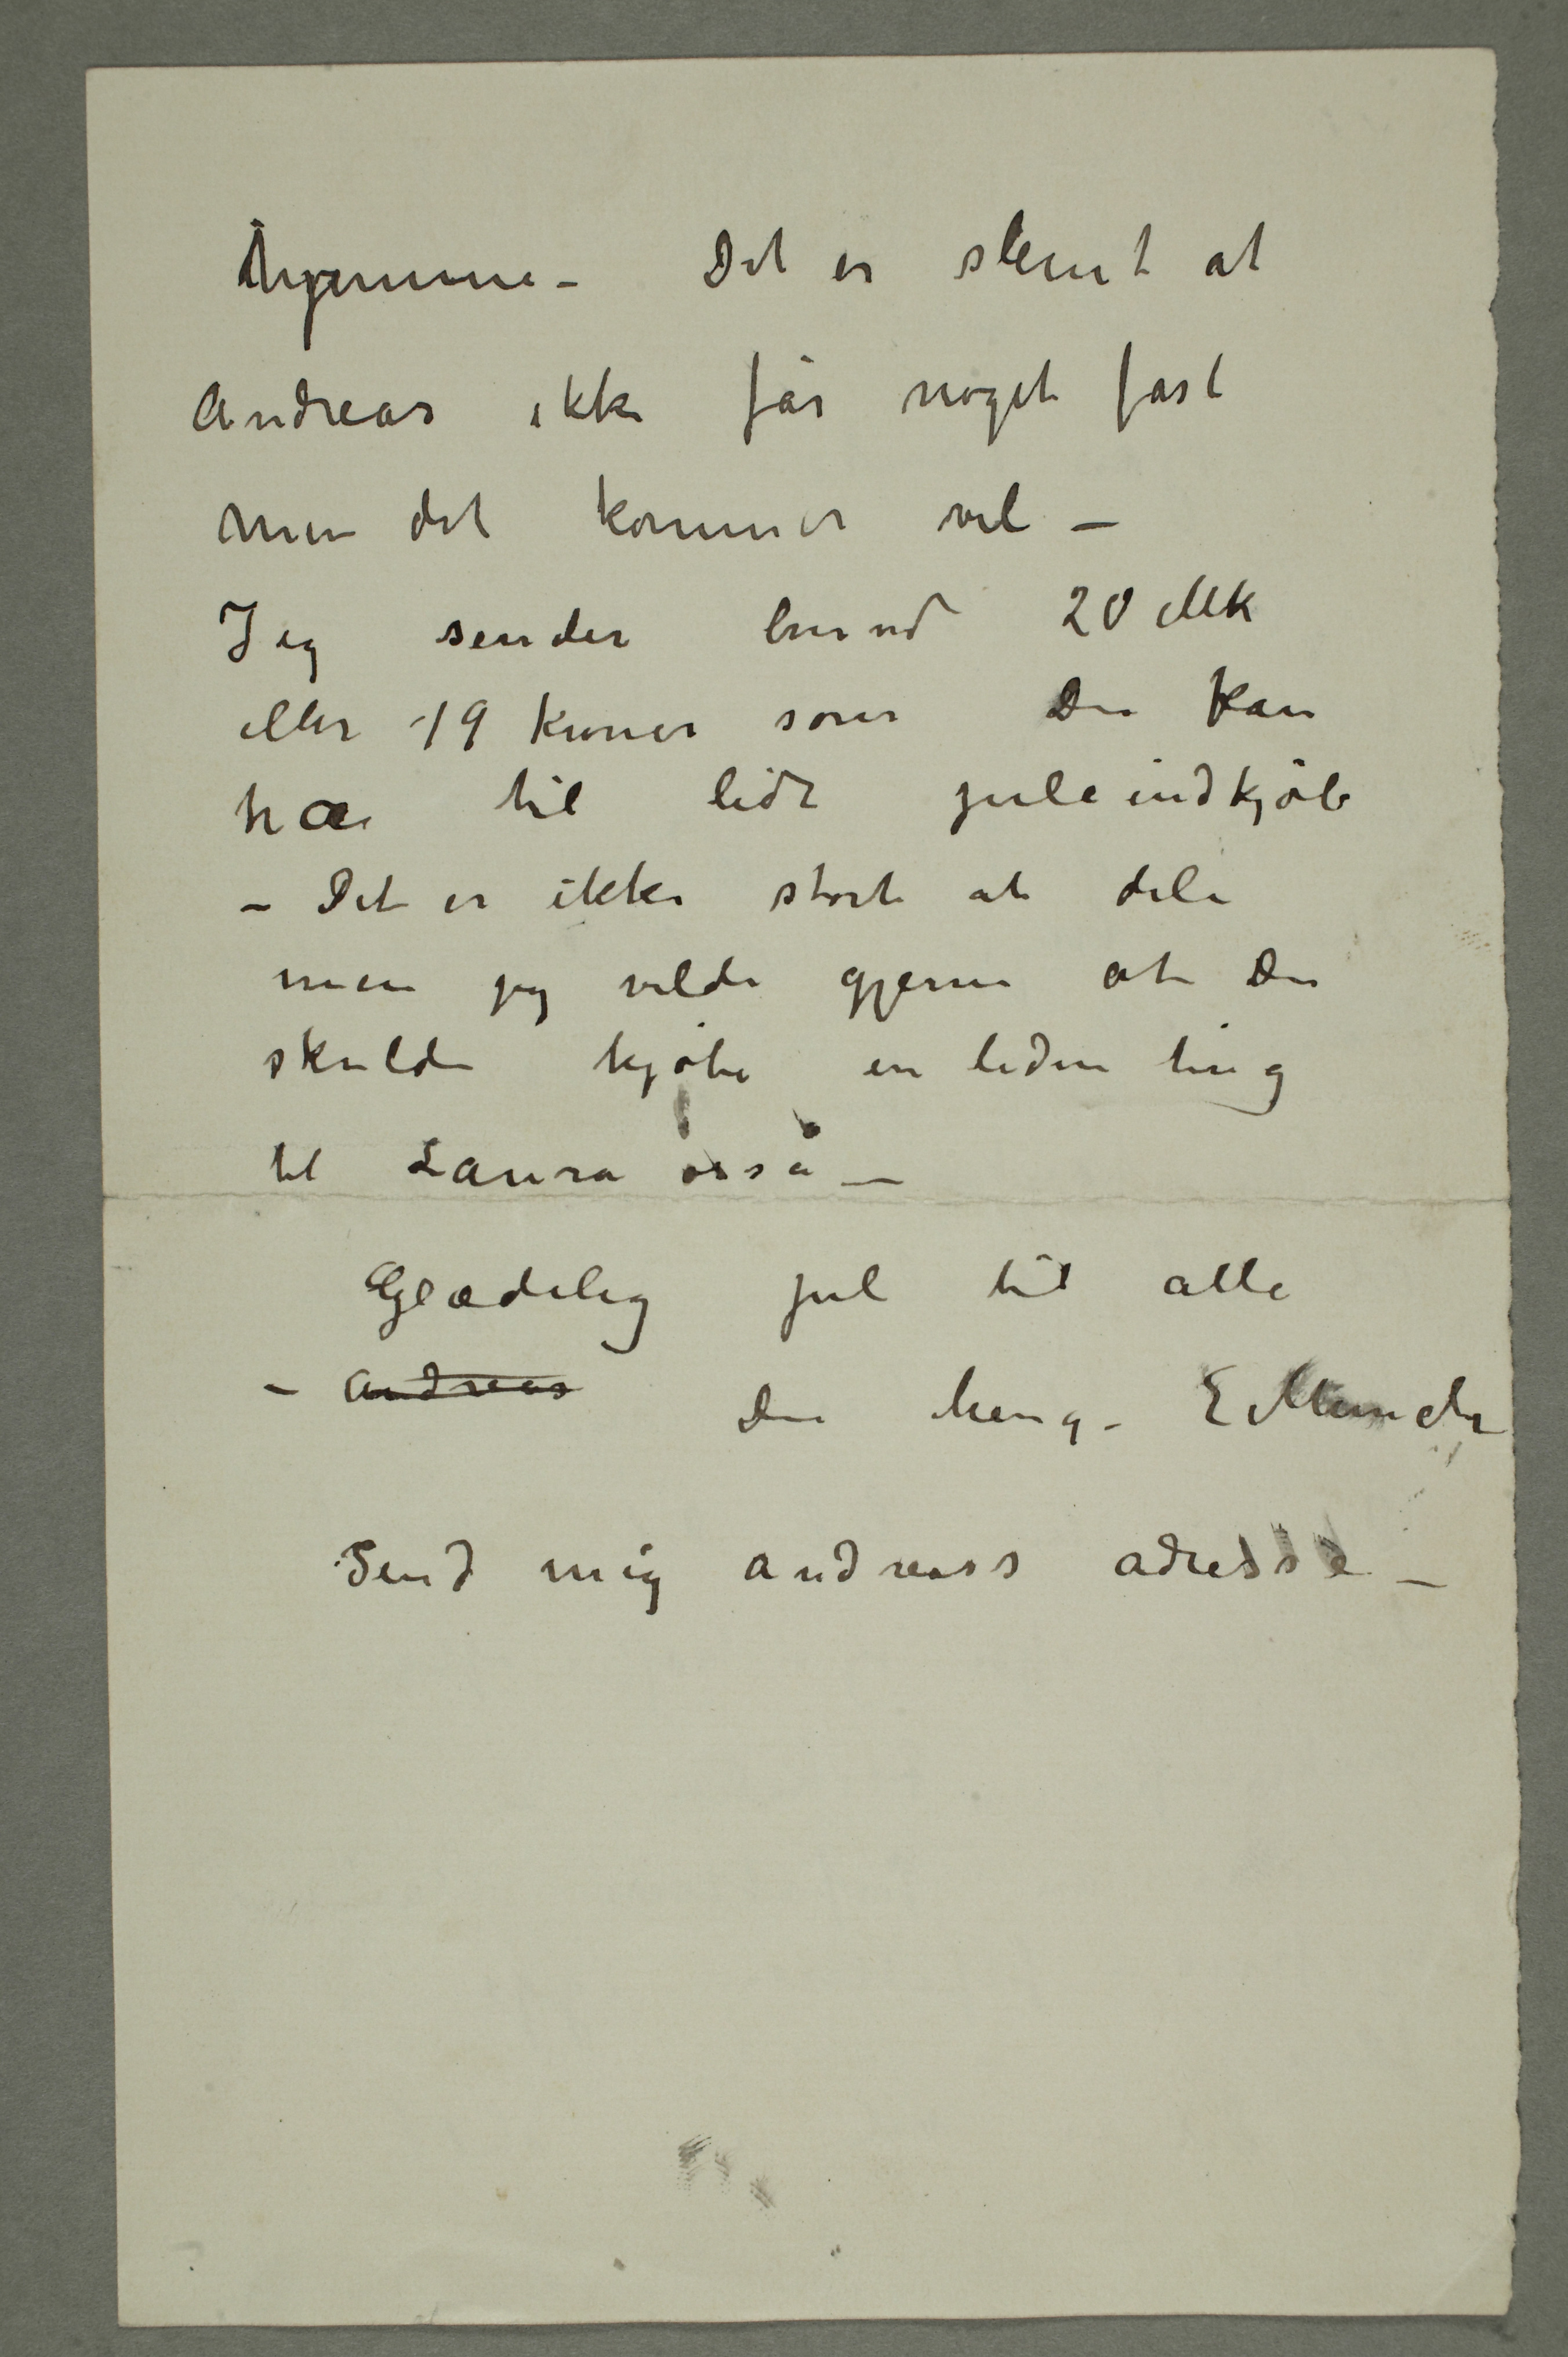 hjemme – Det er slemt at
Andreas ikke får noget fast
men det kommer vel –
Jeg sender 20 Mk
eller 19 kroner som Du kan
ha til lidt juleindkjöb
– Det er ikke stort at dele
men jeg vilde gjerne at Du
skulde kjöbe en liden ting
til Laura også –
Glædelig jul til alle
– Andreas
Din heng. E Munch
Send mig Andreass adresse –